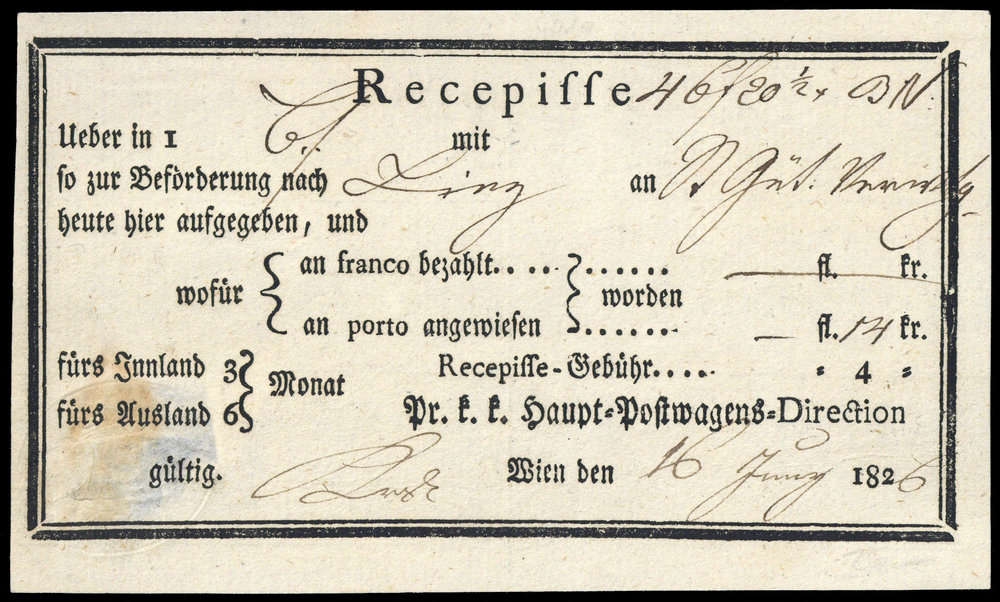 Recepiſſe 46 f 20 ½ x BN.
Ueber in 1 mit
ſo zur Beförderung nach Linz an
heute hier aufgegeben, und
an franco bezahlt.. .. . ...... — fl. kr.
wofür worden
an porto angewieſen ...... — fl. 14 kr.
fürs Innland 3 Recepiſſe-Gebühr.... " 4 "
Monat
fürs Ausland 6 Pr. k. k. Haupt-Poſtwagens-Direction
gültig. Wien den 16 Juny 1826